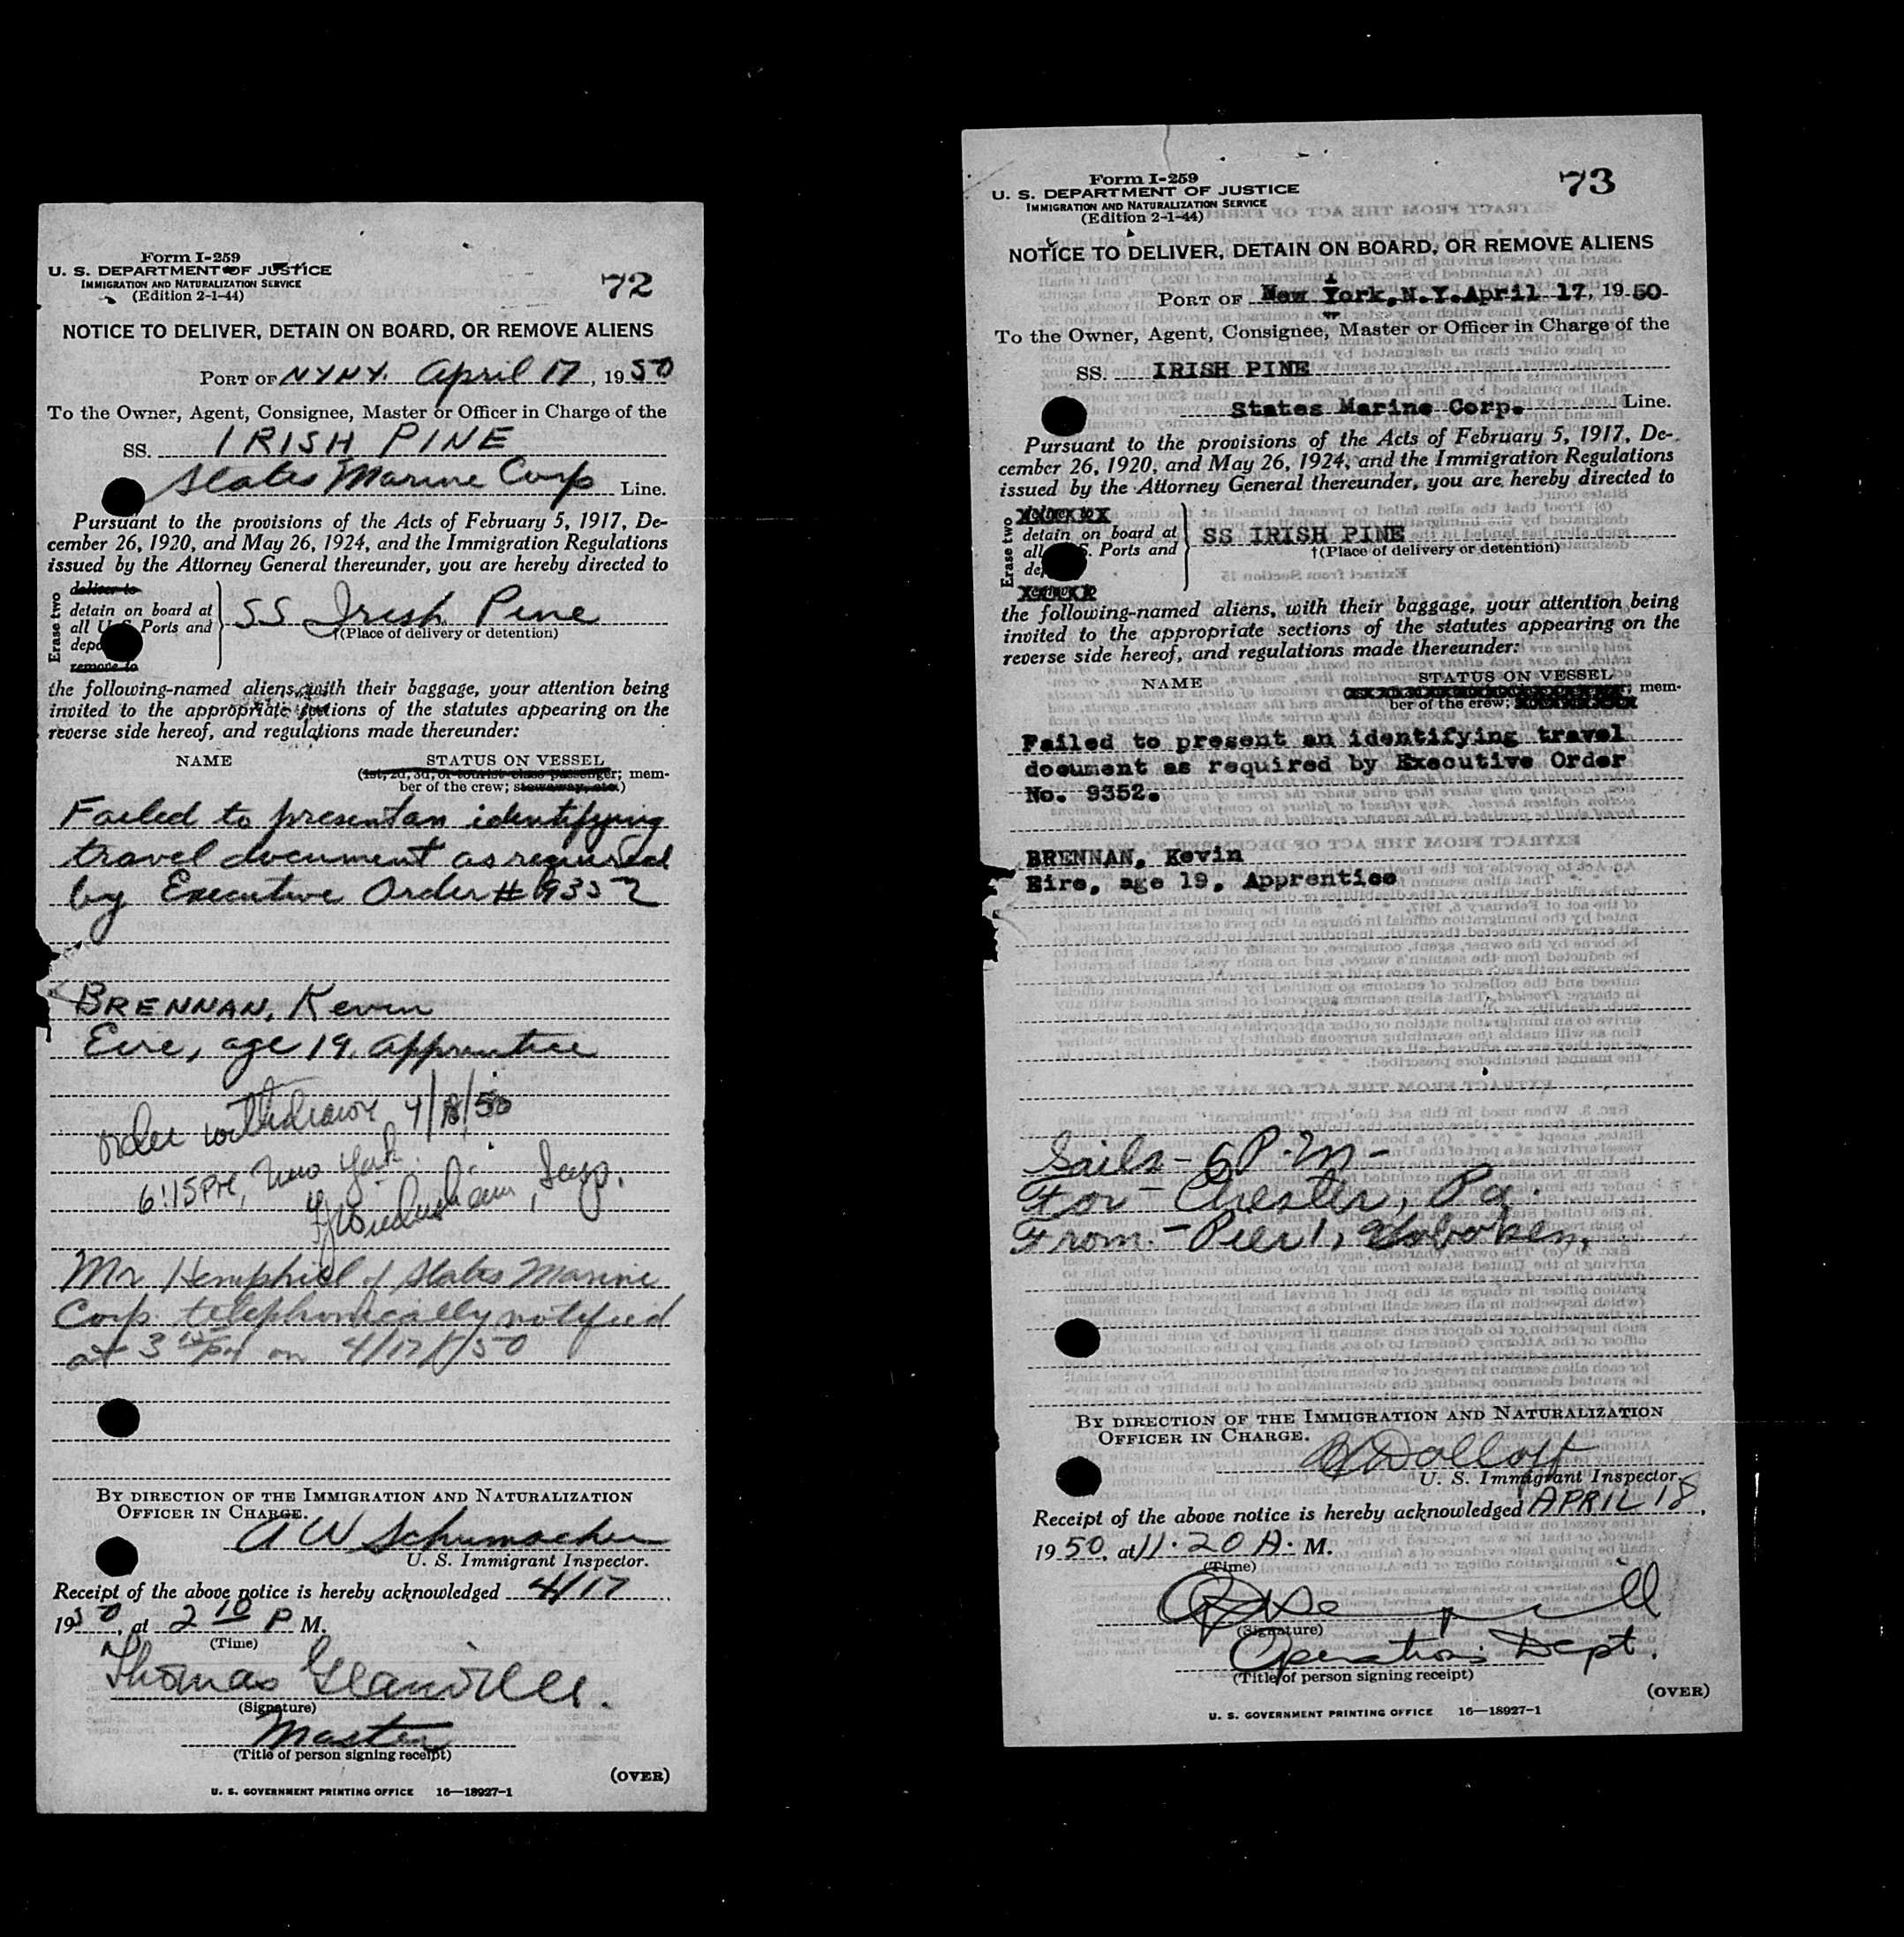 Form I-259
U. S. DEPARTMENT OF JUSTICE
IMMIGRATION AND NATURALIZATION SERVICE
(Edition 2-1-44)
72
NOTICE TO DELIVER, DETAIN ON BOARD, OR REMOVE ALIENS
PORT OF NYNY. April 17, 1950
To the Owner, Agent, Consignee, Master or Officer in Charge of the
SS. IRISH PINE
States Marine Corp Line.
Pursuant to the provisions of the Acts of February 5, 1917, De-
cember 26, 1920, and May 26, 1924, and the Immigration Regulations
issued by the Attorney General thereunder, you are hereby directed to
Erase two
deliver to
detain on board at
all U.S. Ports and
depo
remove to
SS Irish Pine
†(Place of delivery or detention)
the following-named aliens, with their baggage, your attention being
invited to the appropriate sections of the statutes appearing on the
reverse side hereof, and regulations made thereunder:
NAME STATUS ON VESSEL
(1st, 2d, 3d, or tourist class passenger; mem-
ber of the crew; stowaway, etc.)
Failed to present an identifying
travel document as required
by Executive Order # 9352
BRENNAN, Kevin
Eire, age 19, apprentice
Order withdrawn 4/18/50
6:15 PM, New York.
Insp.
Mr Hemphill of States Marine
Corp. telephonically notified
at 3 pm on 4/17/50
BY DIRECTION OF THE IMMIGRATION AND NATURALIZATION
OFFICER IN CHARGE.
A W Schumacher
U. S. Immigrant Inspector.
Receipt of the above notice is hereby acknowledged 4/17
1950, at 2 10 P M.
(Time)
Thomas Glanville.
(Signature)
Master
(Title of person signing receipt)
(OVER)
U. S. GOVERNMENT PRINTING OFFICE 16—18927-1
Form I-259
U. S. DEPARTMENT OF JUSTICE
IMMIGRATION AND NATURALIZATION SERVICE
(Edition 2-1-44)
73
NOTICE TO DELIVER, DETAIN ON BOARD, OR REMOVE ALIENS
PORT OF New York, N.Y. April 17, 19 50
To the Owner, Agent, Consignee, Master or Officer in Charge of the
SS. IRISH PINE
States Marine Corp. Line.
Pursuant to the provisions of the Acts of February 5, 1917, De-
cember 26, 1920, and May 26, 1924, and the Immigration Regulations
issued by the Attorney General thereunder, you are hereby directed to
Erase two
detain on board at
all S. Ports and
de
SS IRISH PINE
†(Place of delivery or detention)
the following-named aliens, with their baggage, your attention being
invited to the appropriate sections of the statutes appearing on the
reverse side hereof, and regulations made thereunder:
NAME STATUS ON VESSEL
mem-
ber of the crew;
Failed to present an identifying travel
document as required by Executive Order
No. 9352.
BRENNAN, Kevin
Eire, age 19, Apprentice
Sails - 6 P.M -
For - Chester, Pa.
From. - Pier 1, Hoboken.
BY DIRECTION OF THE IMMIGRATION AND NATURALIZATION
OFFICER IN CHARGE.
Dolloff
U. S. Immigrant Inspector.
Receipt of the above notice is hereby acknowledged APRIL 18,
19 50, at 11.20 A. M.
(Time)
(Signature)
Operations Dept.
(Title of person signing receipt)
(OVER)
U. S. GOVERNMENT PRINTING OFFICE 16—18927-1